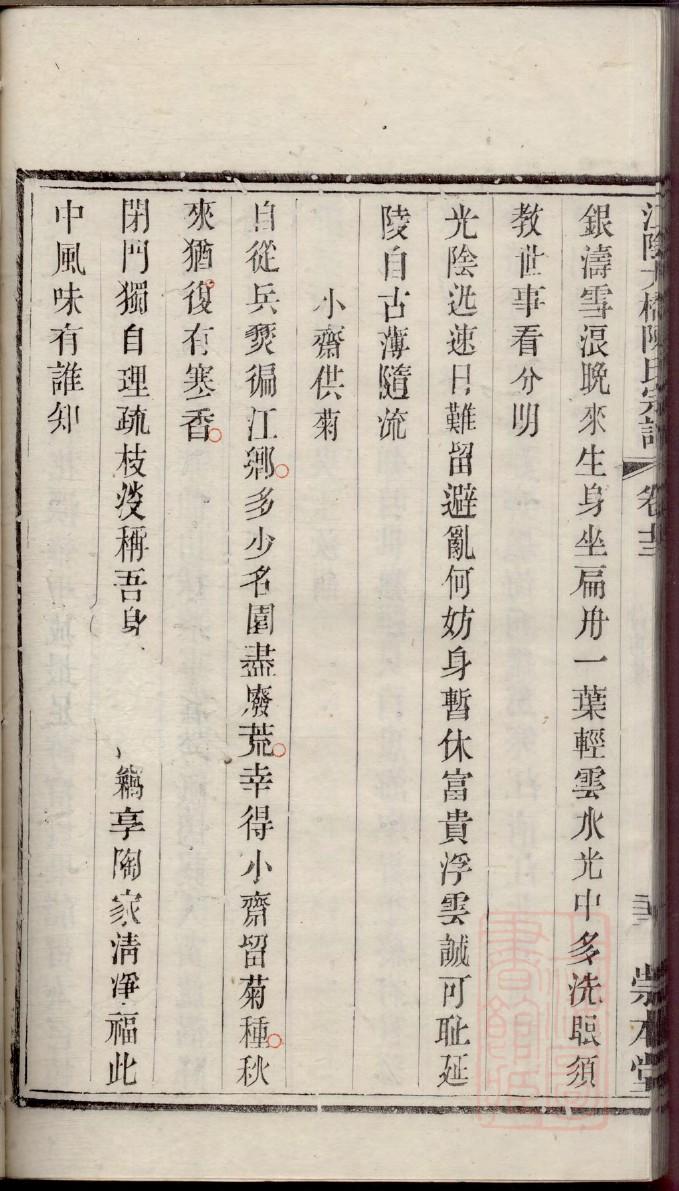 江陰大橋陳氏宗譜 卷十三
崇本堂
銀濤雪浪晚來生身坐扁舟一葉輕雲水光中多洗眼須
教世事看分明
光陰迅速日難留避亂何妨身暫休富貴浮雲誠可耻延
陵自古薄隨流
小齋供菊
自從兵燹徧江鄉多少名園盡廢荒幸得小齋留菊種秋
來猶復有寒香
閉門獨自理疏枝 稱吾身 享陶家清淨福此
中風味有誰知